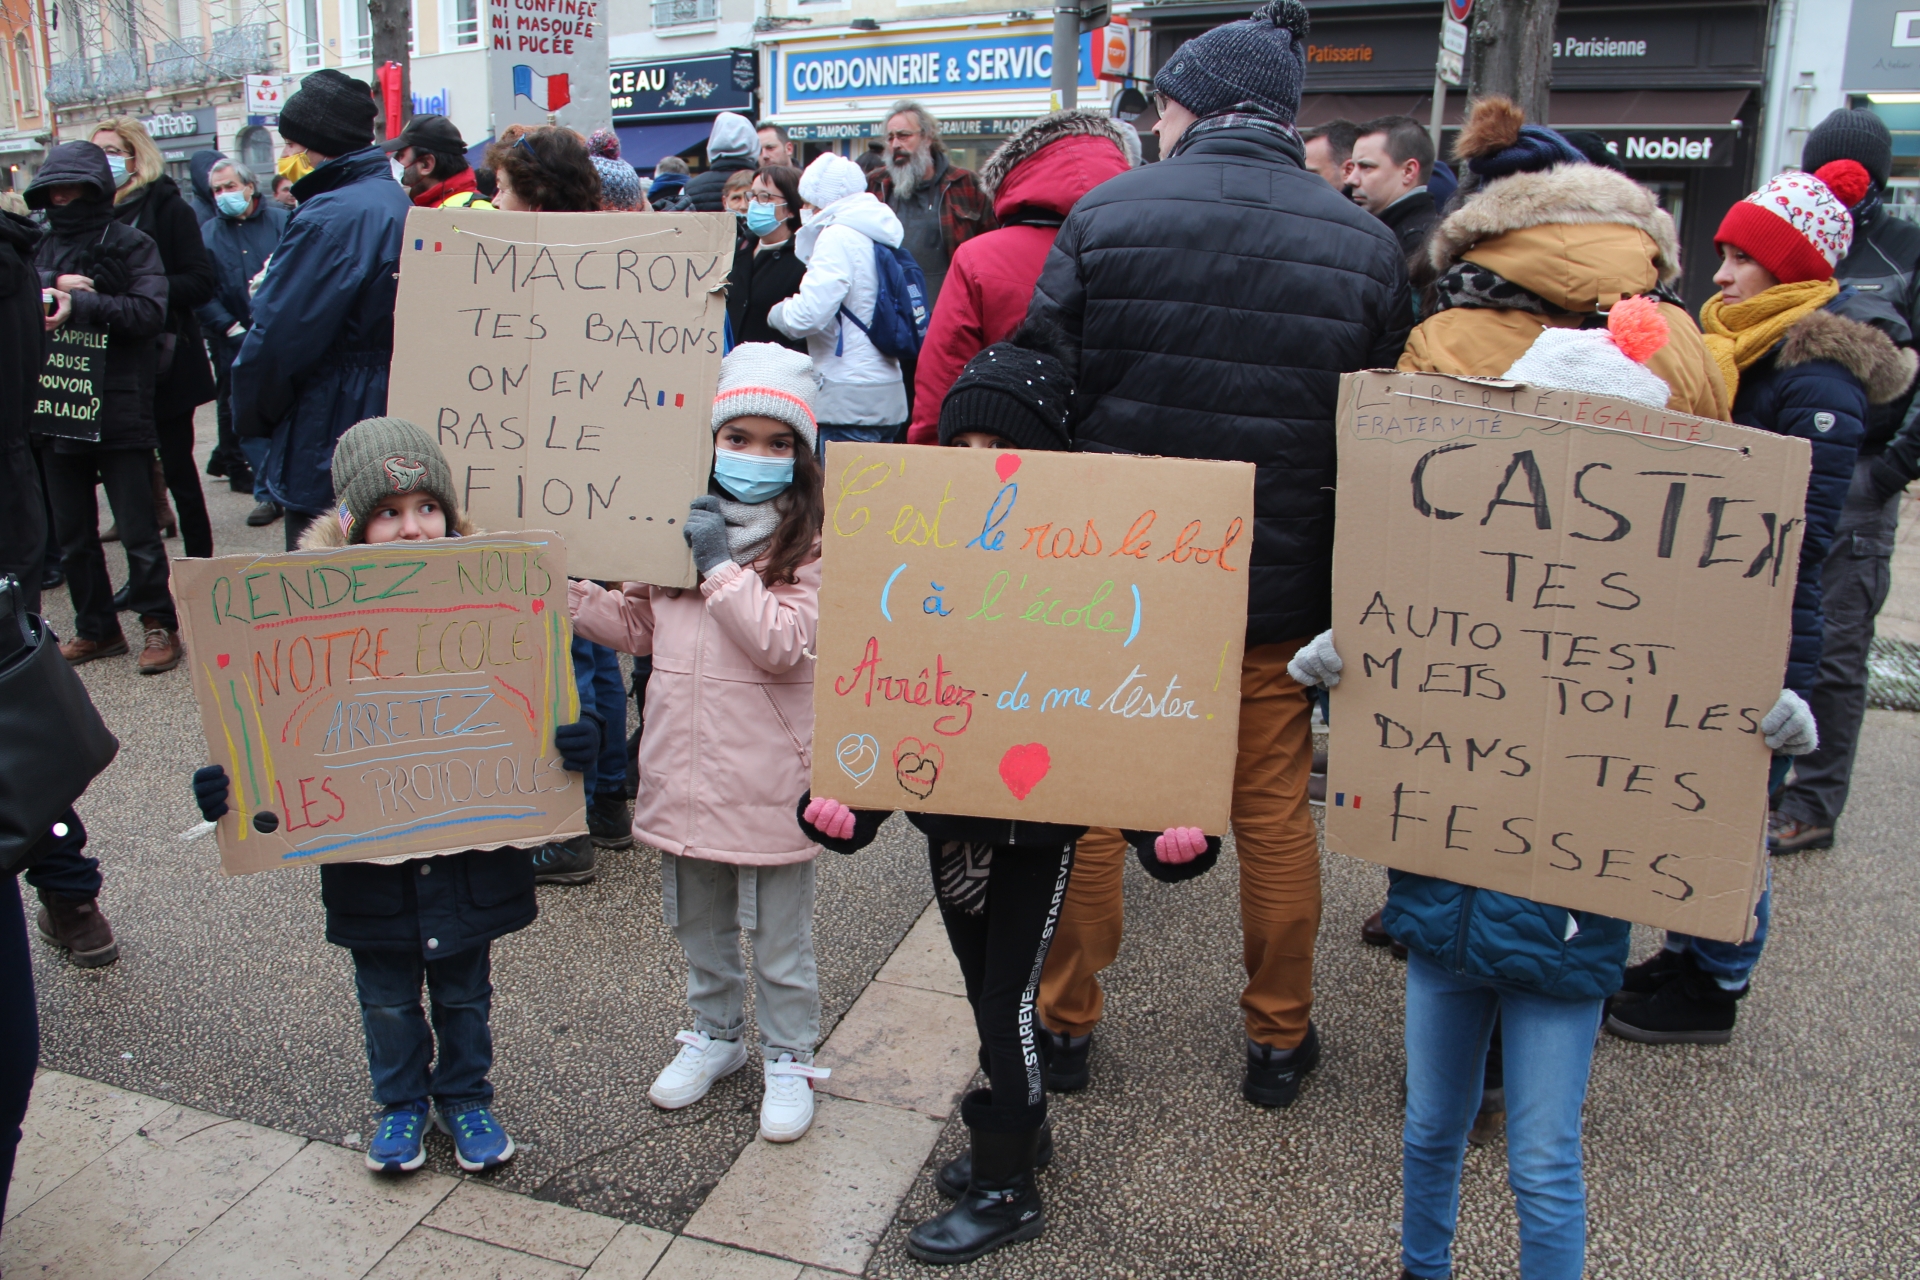 NI CONFINÉE
NI MASQUÉE
NI PUCÉE
CEAU
CORDONNERIE & SERVIC
CLES - TAMPONS -
GRAVURE - PLAQU
Patisserie
a Parisienne
s Noblet
S'APPELLE
ABUSE
POUVOIR
ER LA LOI?
MACRON
TES BATONS
ON EN A
RAS LE
FION...
RENDEZ-NOUS
NOTRE ÉCOLE
ARRETEZ
LES PROTOCOLES
C'est le ras le bol
(à l'école)
Arrêtez-de me tester!
LIBERTÉ, ÉGALITÉ
FRATERNITÉ
CASTEX
TES
AUTO TEST
METS TOI LES
DANS TES
FESSES
STAREVER
STAREVER